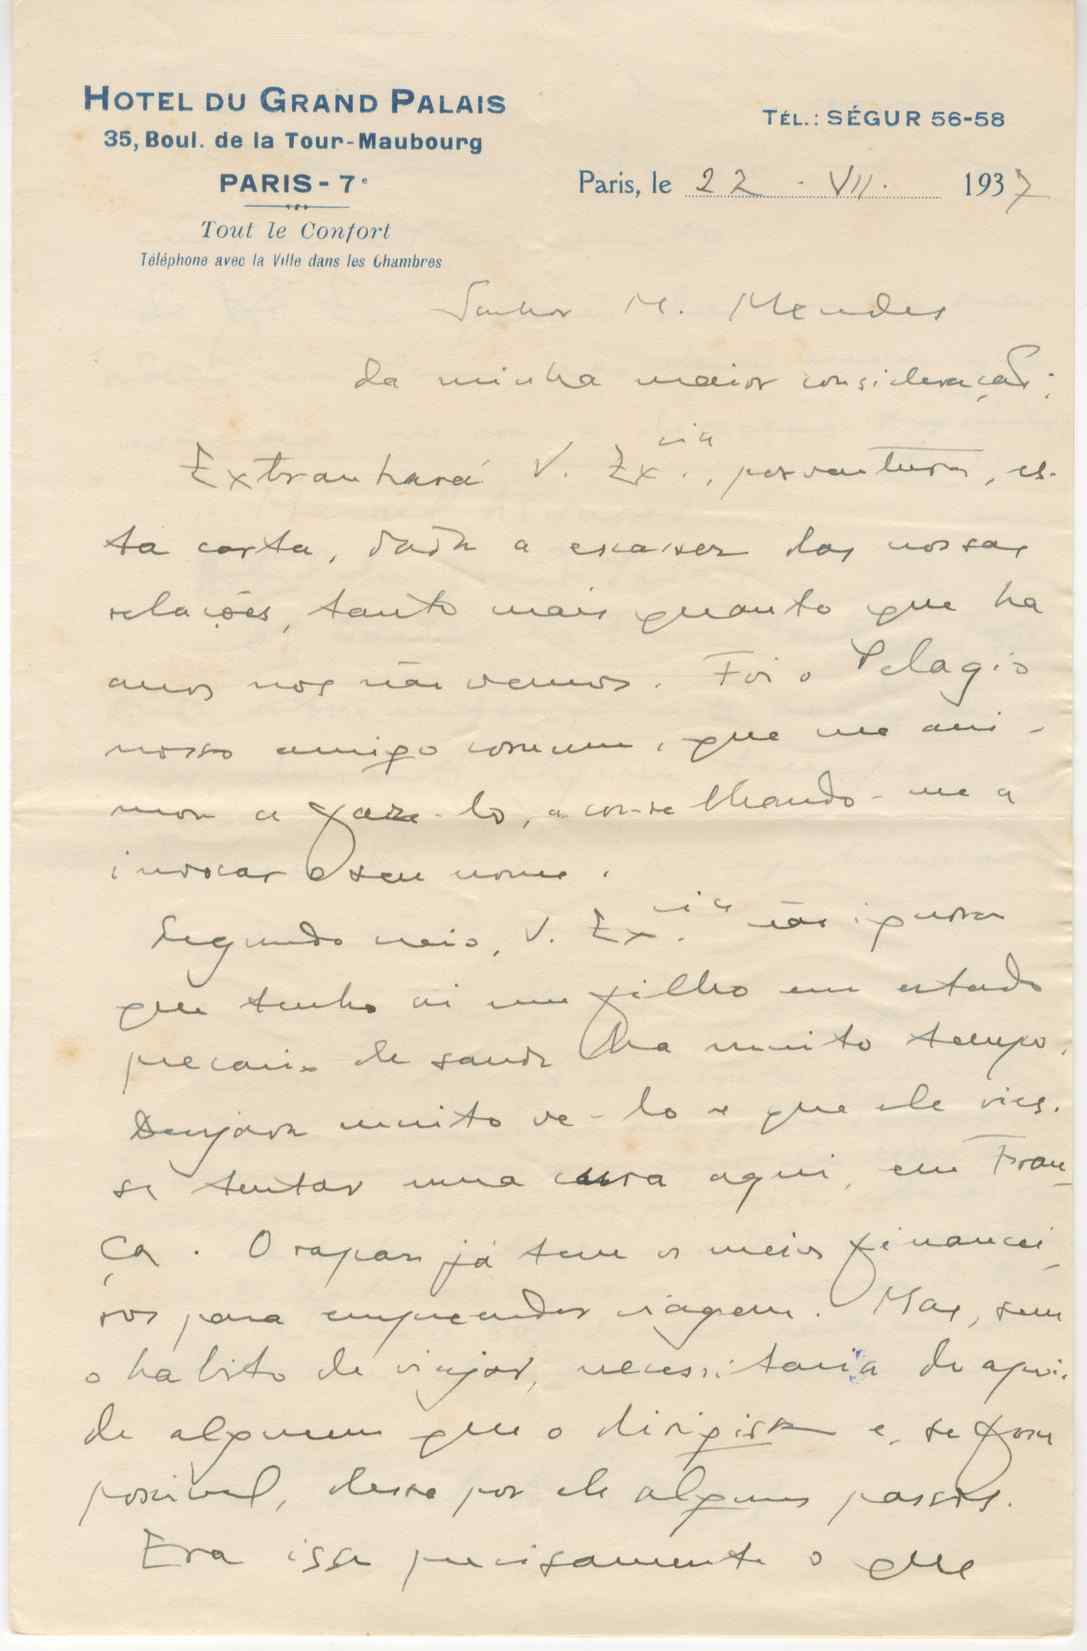 HOTEL DU GRAND PALAIS
35, Boul. de la Tour-Maubourg
PARIS - 7e
Tout le Confort
Téléphone avec la Ville dans les Chambres
TÉL.: SÉGUR 56-58
Paris, le 22 . VII. 1937
Senhor M. Mendes
da minha maior consideração:
Extranhará V. Ex.cia, porventura, es-
ta carta, dada a escassez das nossas
relações, tanto mais quanto que ha
anos nos não vemos. Foi o Pelagio
nosso amigo comum, que me ani-
mou a faze-lo, aconselhando-me a
invocar o seu nome.
Segundo creio, V. Ex.cia não ignora
que tenho aí um filho em estado
precario de saude ha muito tempo.
Desejava muito ve-lo e que ele vies-
se tentar uma cura aqui, em Fran-
ça. O rapaz já tem os meios financei-
ros para empreender viagem. Mas, sem
o habito de viajar, necessitaria do apoio
de alguem que o dirigisse e, se fosse
possivel, desse por ele alguns passos.
Era isso precisamente o que